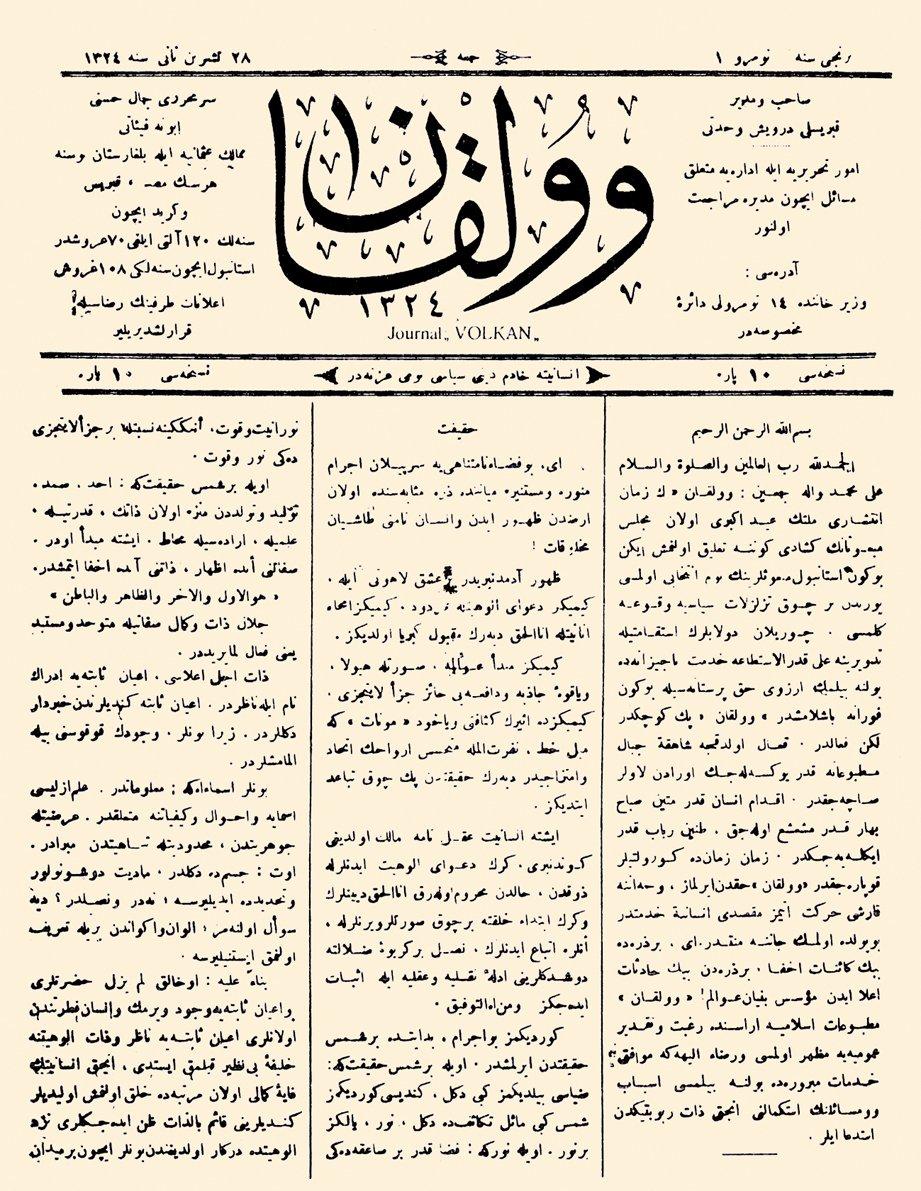 برنجی سنه نومرو ١
جمعه
٢٨ تشرین ثانی سنه ١٣٢٤
صاحب ومدیر
قبریسلی درویش وحدتی
امور تحریریه ایله اداره یه متعلق
مسائل ایچون مدیره مراجعت
اولنور
آدره سی :
وزیر خاننده ١٤ نومرولی دائرهٔ
مخصوصه در
وولقان
١٣٢٤
Journal „ VOLKAN „
سرمحرری جمال حسنی
ابونه فیئاتی
ممالك عثمانیه ایله بلغارستان بوسنه
هرسك مصر ، قبریس
وکرید ایچون
سنه لك ١٢٠ آلتی ایلغی ٧٠ غروشدر
استانبول ایچون سنه لکی ١٠٨ غروش
اعلانات طرفینك رضاسیله
قرارلشدیریلیر
نسخه سی ١٠ پاره
انسانیته خادم دینی سیاسی یومی غزته در
نسخه سی ١٠ پاره
بسم الله الرحمن الرحیم
الحمدلله رب العالمین والصلوة والسلام
علی محمد واله اجمعین : وولقان « ك زمان
انتشاری ملتك عید اکبری اولان مجلس
مبعوثانك کشادی کوننه تعلیق اولنمش ایکن
بوکون استانبول مبعوثلرینك یوم انتخابی اولمسی
یوزندن بر چوق تزلزلات سیاسیه وقوعه
کلمسی . چوریلان دولابلرك استقامتیله
تدویرینه علی قدر الاستطاعه خدمت ناچیزانه ده
بولنه بیلمك آرزوی حق پرستانه سیله بوکون
فورانه باشلامشدر » وولقان « پك کوچکدر
لکن فعالدر .
مطبوعاته قدر یوکسله جك اورادن لاولر
صاچه جقدر . اقدام انسان قدر متین صباح
بهار قدر مشعشع اوله جق . طنین رباب قدر
ایکله یه جکدر . زمان زمان ده کورولتیلر
قوپاره جقدر «وولقان» حقدن ایرلماز ،
قارشی حرکت ایتمز مقصدی انسانه خدمتدر
بو یولده اولمك جاننه منتدر . ای ، بر ذره ده
بیك کائنات اخفا . بر ذره دن بیك حادثات
اعلا ایدن مؤسس بنیان عوالم ! « وولقان »
مطبوعات اسلامیه اراسنده رغبت وتقدیر
عمومیه یه مظهر اولمسی ورضاء الهیه که موافق
خدمات مبروره ده بولنه بیلمسی اسباب
ووسائلنك استکمالنی انجق ذات ربوبیتکدن
استدعا ایلر .
حقیقت
ای ، بو فضاء نامتناهی یه سرپیلان اجرام
منوره ومستنیره میاننده ذره مثابه سنده اولان
ارضدن ظهور ایدن وانسان نامنی طاشییان
مخلوقات !
ظهور آدمدنبریدر عشق لاهوتی ایله ،
کیمیکز دعوای الوهیتده بولندی . کیمیکز امحاء
انانیتله انا الحق دیه رك مقبول کبریا اولدیکز .
کیمیکز مبدأ عوالمه ، صورتله هیولا ،
ویا قوهٔ جاذبه ودافعه یی حائز جزأ لایتجزی .
کیمیکز ده اثیرك کثافتی ویاخود « مونات » که
میل خط ، نفرت المله متحسس ارواحك اتحاد
وامتزاجیدر دیه رك حقیقتدن پك چوق تباعد
ایتدیکز .
ایشته انسانیت عقل نامه مالك اولدیغی
کوندنبری . کرك دعوای الوهیت ایدنلرله
ذوقدن ، حالدن محروم اوله رق انا الحق دیینلرك
وکرك ابتداء خلقته بر چوق صورتلر ویرنلرله ،
آنلره اتباع ایدنلرك ، نصل بر کریوهٔ ضلالته
دوشدکلرینی ادلهٔ نقلیه وعقلیه ایله اثبات
ایده جکز ومن الله التوفیق .
کوردیکمز بو اجرام ، بدایتده بر شمس
حقیقتدن ایرلمشدر . اویله بر شمس حقیقت که :
ضیاسی بیلدیکمز کبی دکل ، کندیسی کوردیکمز
شمس کبی مائل تکاثف ده دکل ، نور ، یالکز
بر نور . اویله نور که : فضا قدر بر صاعقه ده کی
نورانیت وقوت ، آنککینه نسبتله بر جزأ لایتجزی
ده کی نور وقوت .
اویله بر شمس حقیقت که : احد ، صمد ،
تولید وتولددن منزه اولان ذاتك ، قدرتیله ،
علمیله ، اراده سیله محاط . ایشته مبدأ اودر .
صفاتنی آنده اظهار ، ذاتنی آنده اخفا ایتمشدر .
« هو الاول والاخر والظاهر والباطن »
جلال ذات وکمال صفاتیله متوحد ومستبد
یعنی فعال لما یریددر .
ذات اجل اعلاسی ، اعیان ثابته یه ادراك
نام ایله ناظردر . اعیان ثابته کندیلرندن خبردار
دکللردر . زیرا بونلر . وجودك قوقوسنی بیله
المامشلردر .
بونلر اسماء که ; معلوماتدر . علم ازلیسی
اسمایه واحوال وکیفیاتنه متعلقدر . عرضیتله
جوهریتدن ، محدودیتله تناهیتدن مبرادر .
اوت : جسم ده دکلدر . مادیت دوشونولور
وتحدیده ایدیلیرسه ؛ نه در ونصلدر ؟ دیه
سوأل اولنه مز ; الوان واکواندن بریله تعریف
اولنمق ایستنیلیرسه .
بناءً علیه : او خالق لم یزل حضرتلری
واعیان ثابته یه وجود ویرمك وانسان فطرتندن
اولانلری اعیان ثابته یه ناظر وفات الوهیتنه
خلیفهٔ بی نظیر قیلمق ایستدی ، انجق انسانیتك
غایهٔ کمالی اولان مرتبه ده خلق اولنمش اولیدیلر
کندیلرینی قائم بالذات ظن ایده جکلری نزد
الوهیتده درکار اولدیغندن بونلر ایچون بر میدان